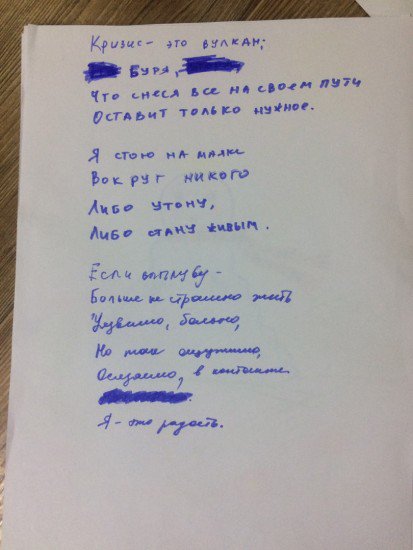 Кризис - это вулкан;
Буря,
Что снеся все на своем пути
Оставит только нужное.
Я стою на маяке
Вокруг никого
Либо утону,
Либо стану живым.
Если выплыву -
Больше не страшно жить
Уязвимо, больно,
Но так ощутимо,
Осязаемо, в контакте
Я - это радость.